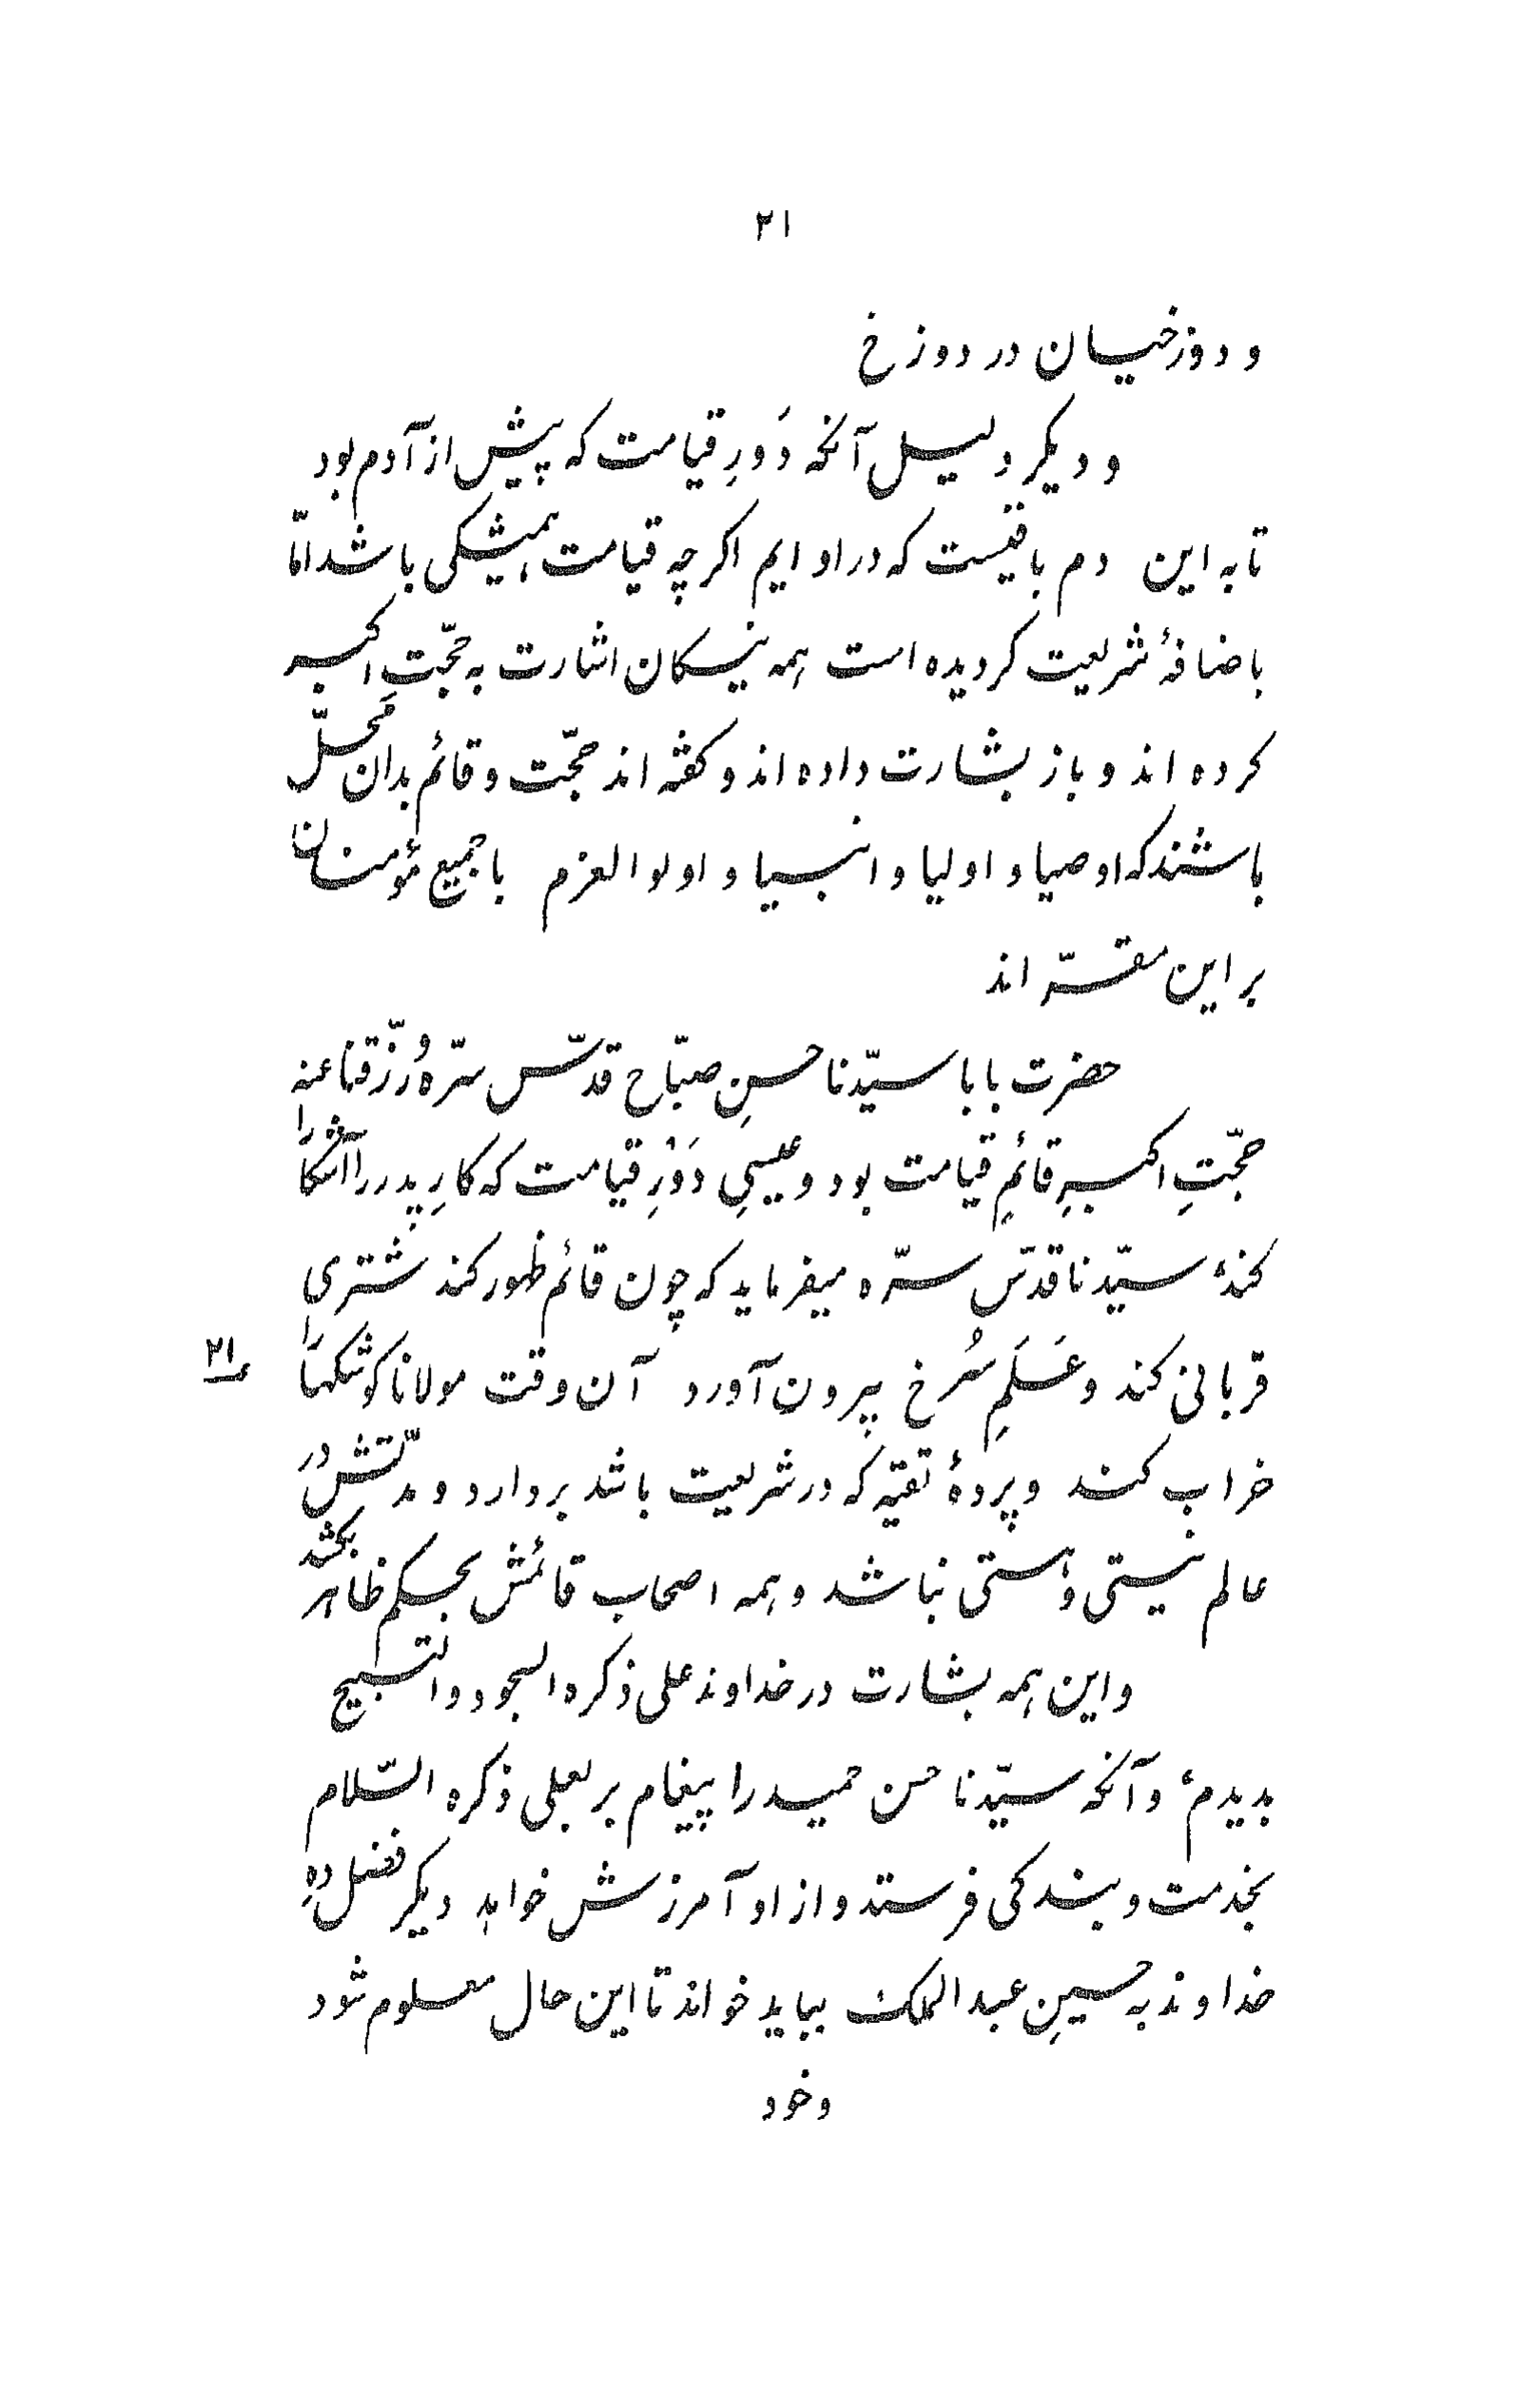 ۲۱
و دوزخیان در دوزخ
و دیکر دلیل آنکه دَورِ قیامت که پیش از آدم بود
تا به این دم باقیست که در او ایم اکر چه قیامت همیشکی باشد امّا
باضافهٔ شریعت کردیده است همه نیکان اشارت به حجّتِ اکبر
کرده اند و باز بشارت داده اند و کفته اند حجّت و قائم بدان مَحلّ
باشند که اوصیا و اولیا و انبیا و اولوالعزم با جمیع مؤمنان
بر این مقرّ اند
حضرت بابا سیّدنا حسنِ صبّاح قدّس سرّه و رُزّقنا عنه
حجّتِ اکبرِ قائمِ قیامت بود و عیسیِ دَوْرِ قیامت که کارِ پدر را آشکارا
کند سیّدنا قدّس سرّه میفرماید که چون قائم ظهور کند شتری
قربانی کند و عَلَمِ سُرخ بیرون آورد آن وقت مولانا کوشکها را
۲۱
خراب کند و پردهٔ تقیّه که در شریعت باشد بردارد و مدّتش در
عالم نیستی و هستی نباشد و همه اصحاب قائمش بحکم ظاهر بکشد
و این همه بشارت در خداوند علی ذکره السجود و التسبیح
بدیدم و آنکه سیّدنا حسن حمید را پیغام بر لعلی ذکره السّلام
بخدمت و بندکی فرستد و از او آمرزش خواهد دیکر فضل دهِ
خداوند به حسینِ عبدالملک بباید خواند تا این حال معلوم شود
و خود